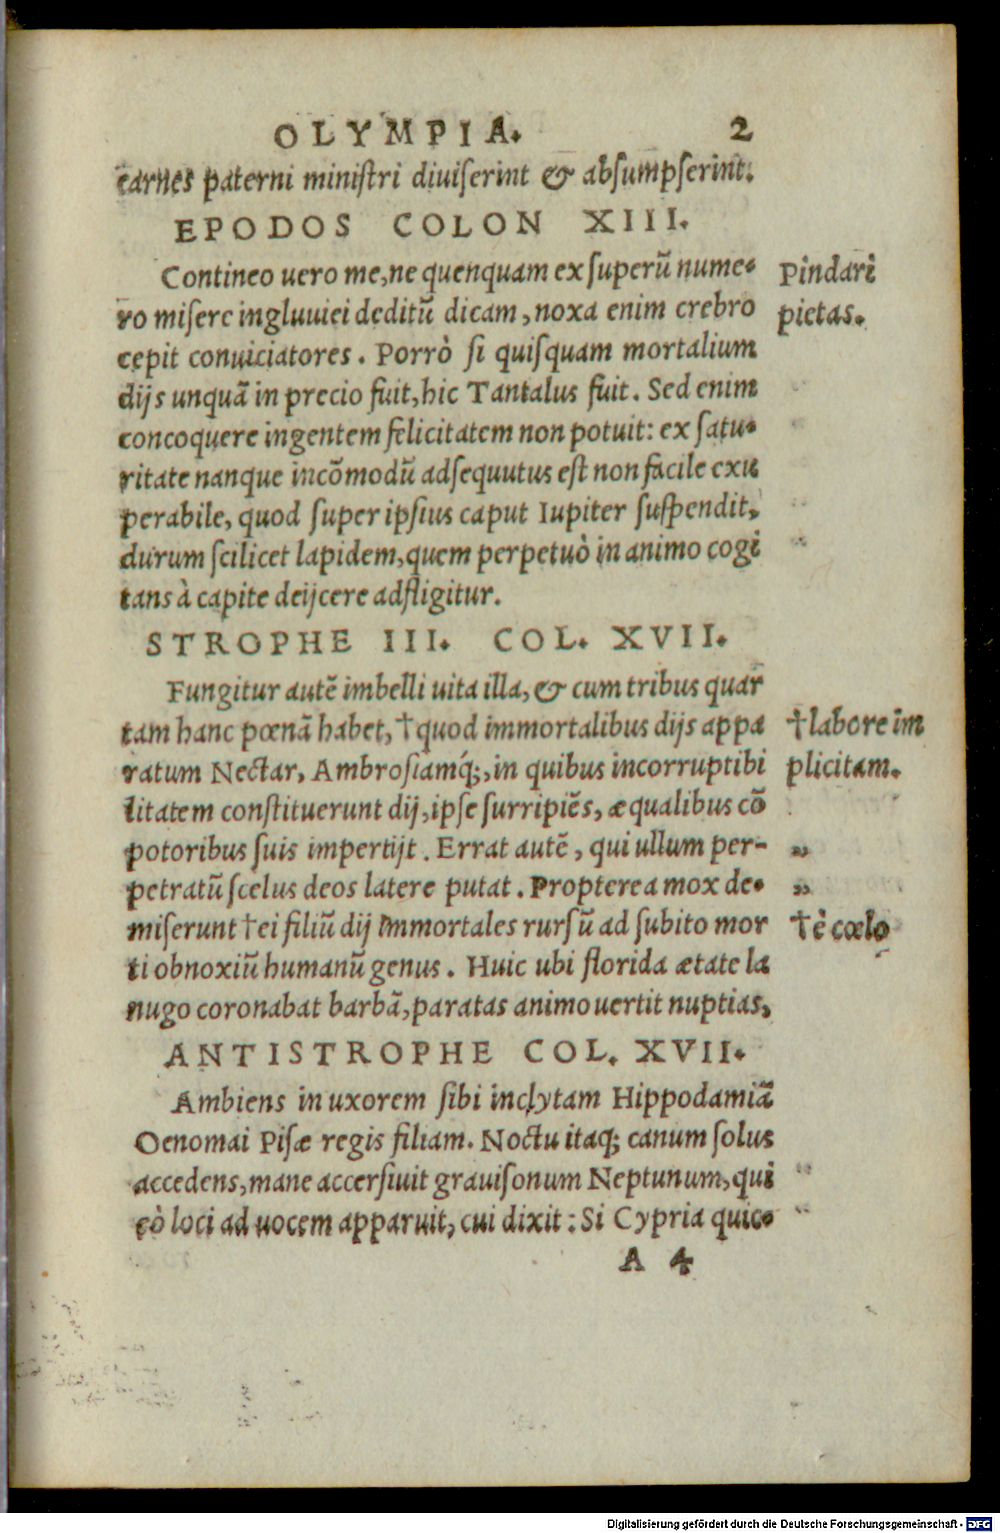 OLYMPIA. 2
carnes paterni miniſtri diuiſerint & abſumpſerint.
EPODOS COLON XIII.
Contineo uero me,ne quenquam ex ſuperũ nume- Pindari
ro miſere ingluuiei deditũ dicam, noxa enim crebro pietas.
cepit conuiciatores. Porrò ſi quiſquam mortalium
dijs unquã in precio fuit, hic Tantalus fuit. Sed enim
concoquere ingentem felicitatem non potuit: ex ſatu-
ritate nanque incõmodũ adſequutus eſt non facile exu
perabile, quod ſuper ipſius caput Iupiter ſuſpendit,
durum ſcilicet lapidem,quem perpetuò in animo cogi
tans à capite deijcere adfligitur.
STROPHE III. COL. XVII.
Fungitur autẽ imbelli uita illa, & cum tribus quar
tam hanc pœnã habet, †quod immortalibus dijs appa †labore im
ratum Nectar, Ambroſiamq́;, in quibus incorruptibi plicitam.
litatem conſtituerunt dij, ipſe ſurripiẽs, æqualibus cõ
potoribus ſuis impertijt. Errat autẽ, qui ullum per- „
petratũ ſcelus deos latere putat. Propterea mox de- „
miſerunt †ei filiũ dij immortales rurſũ ad ſubito mor †è cœlo
ti obnoxiũ humanũ genus. Huic ubi florida ætate la
nugo coronabat barbã, paratas animo uertit nuptias,
ANTISTROPHE COL. XVII.
Ambiens in uxorem ſibi inclytam Hippodamiã
Oenomai Piſæ regis filiam. Noctu itaq; canum ſolus
accedens, mane accerſiuit grauiſonum Neptunum, qui
eò loci ad uocem apparuit, cui dixit: Si Cypria quic-
A 4
Digitalisierung gefördert durch die Deutsche Forschungsgemeinschaft - DFG